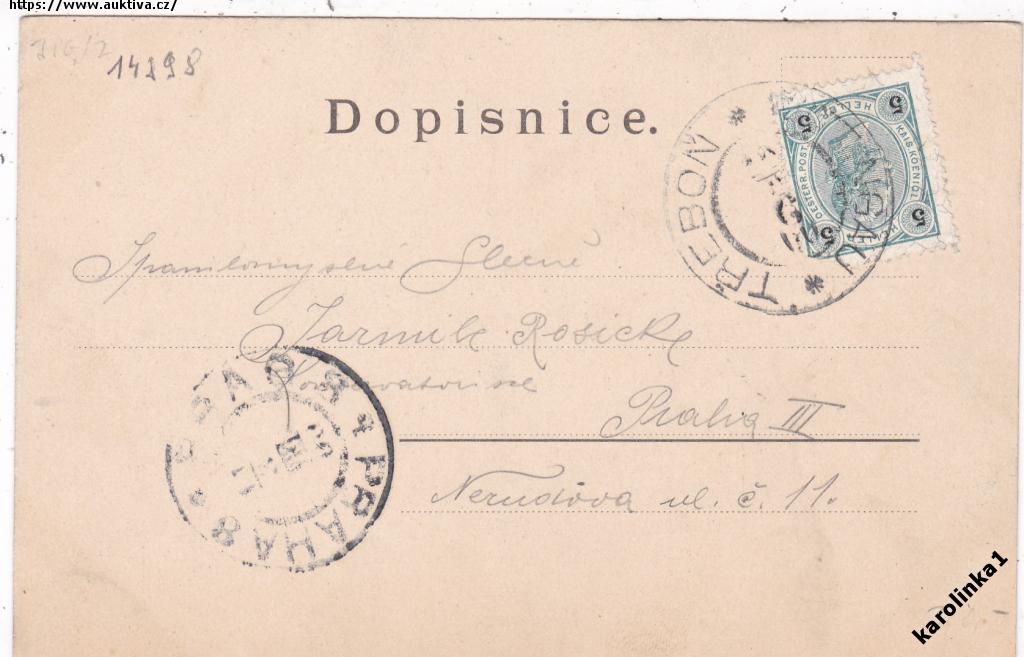 https://www.auktiva.cz/
14898
Dopisnice.
5 HELLER 5
KAIS. KOENIGL.
OESTERR. POST.
5 5
TŘEBOŇ
Slečně
Jarmile Rosické
Praha III
Nerudova ul. č. 11.
PRAG 8 * PRAHA 8 *
karolinka1